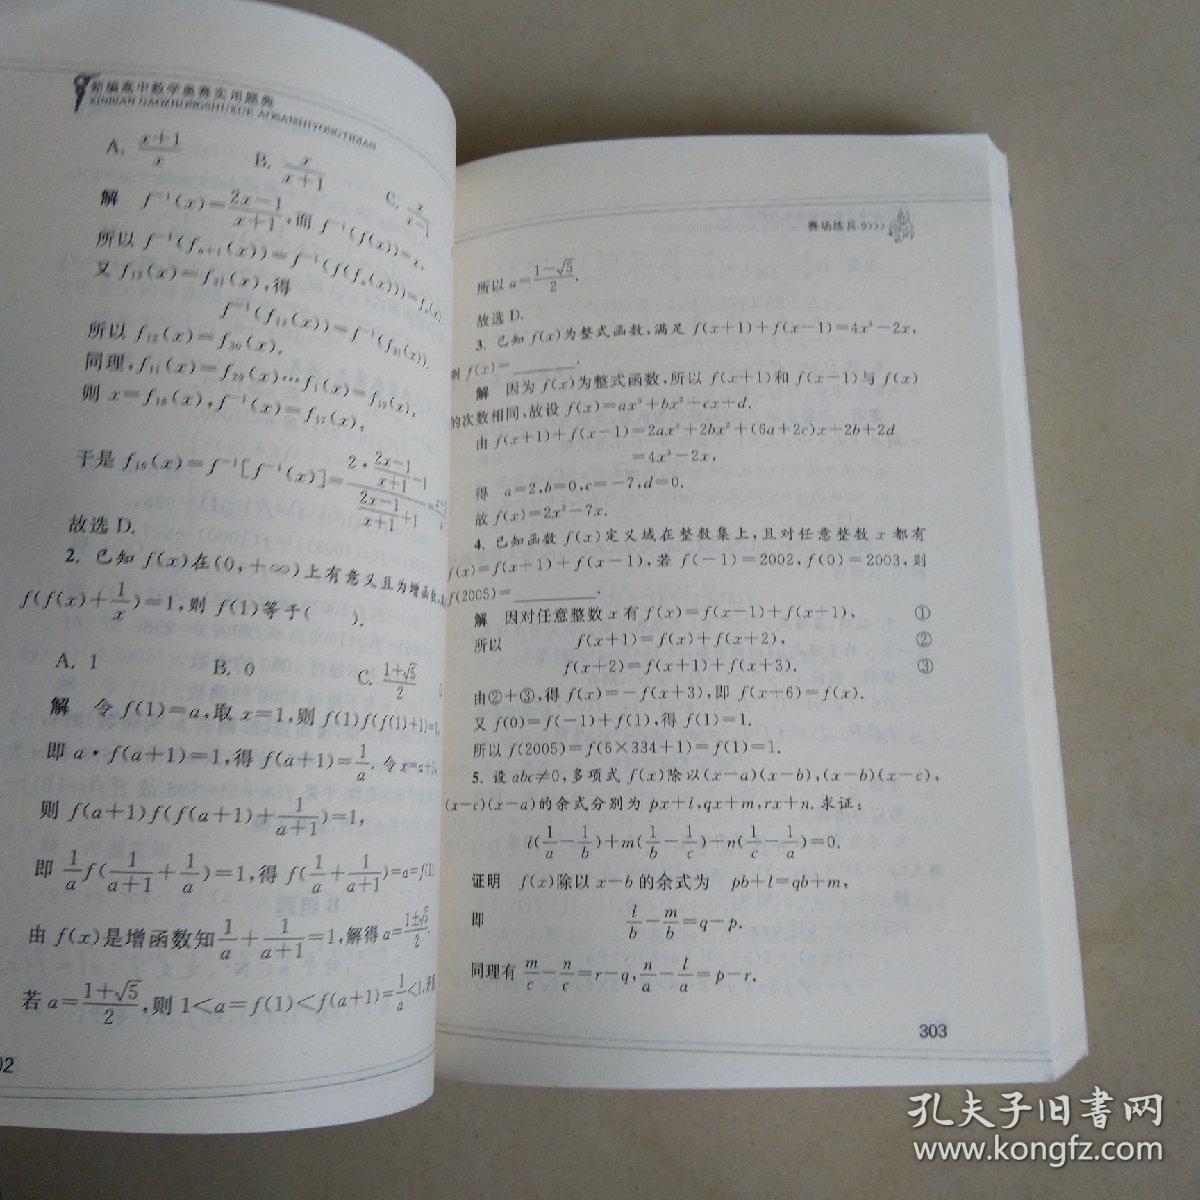 新编高中数学奥赛实用题典
XINBIAN GAOZHONGSHUXUE AOSAISHIYONGTIDIAN
A. (x+1)/x  B. x/(x+1)  C. x/(x-1)
解 f⁻¹(x)=(2x-1)/(x+1),而 f⁻¹(f(x))=x,
所以 f⁻¹(fₙ₊₁(x))=f⁻¹(f(fₙ(x)))=fₙ(x).
又 f₁₃(x)=f₃₁(x),得
f⁻¹(f₁₃(x))=f⁻¹(f₃₁(x)).
所以 f₁₂(x)=f₃₀(x).
同理,f₁₁(x)=f₂₉(x)…f₁(x)=f₁₉(x),
则 x=f₁₈(x),f⁻¹(x)=f₁₇(x),
于是 f₁₆(x)=f⁻¹[f⁻¹(x)]=(2·(2x-1)/(x+1)-1)/((2x-1)/(x+1)+1)=
故选 D.
2. 已知 f(x)在(0,+∞)上有意义且为增函数,
f(f(x)+1/x)=1,则 f(1)等于(  ).
A. 1  B. 0  C. (1±√5)/2
解 令 f(1)=a,取 x=1,则 f(1)f(f(1)+1)=1,
即 a·f(a+1)=1,得 f(a+1)=1/a. 令 x=a+1,
则 f(a+1)f(f(a+1)+1/(a+1))=1,
即 1/a f(1/(a+1)+1/a)=1,得 f(1/a+1/(a+1))=a=f(1)
由 f(x)是增函数知 1/a+1/(a+1)=1,解得 a=(1±√5)/2.
若 a=(1+√5)/2,则 1<a=f(1)<f(a+1)=1/a<1,
02
赛场练兵 9››››
所以 a=(1-√5)/2.
故选 D.
3. 已知 f(x)为整式函数,满足 f(x+1)+f(x-1)=4x³-2x,
则 f(x)=________.
解 因为 f(x)为整式函数,所以 f(x+1)和 f(x-1)与 f(x)
的次数相同,故设 f(x)=ax³+bx²+cx+d.
由 f(x+1)+f(x-1)=2ax³+2bx²+(6a+2c)x+2b+2d
=4x³-2x,
得 a=2,b=0,c=-7,d=0.
故 f(x)=2x³-7x.
4. 已知函数 f(x)定义域在整数集上,且对任意整数 x 都有
f(x)=f(x+1)+f(x-1),若 f(-1)=2002,f(0)=2003,则
f(2005)=________.
解 因对任意整数 x 有 f(x)=f(x-1)+f(x+1), ①
所以 f(x+1)=f(x)+f(x+2), ②
f(x+2)=f(x+1)+f(x+3). ③
由②+③,得 f(x)=-f(x+3),即 f(x+6)=f(x).
又 f(0)=f(-1)+f(1),得 f(1)=1.
所以 f(2005)=f(6×334+1)=f(1)=1.
5. 设 abc≠0,多项式 f(x)除以(x-a)(x-b),(x-b)(x-c),
(x-c)(x-a)的余式分别为 px+l,qx+m,rx+n. 求证:
l(1/a-1/b)+m(1/b-1/c)+n(1/c-1/a)=0.
证明 f(x)除以 x-b 的余式为 pb+l=qb+m,
即 l/b-m/b=q-p.
同理有 m/c-n/c=r-q,n/a-l/a=p-r.
303
孔夫子旧书网
www.kongfz.com